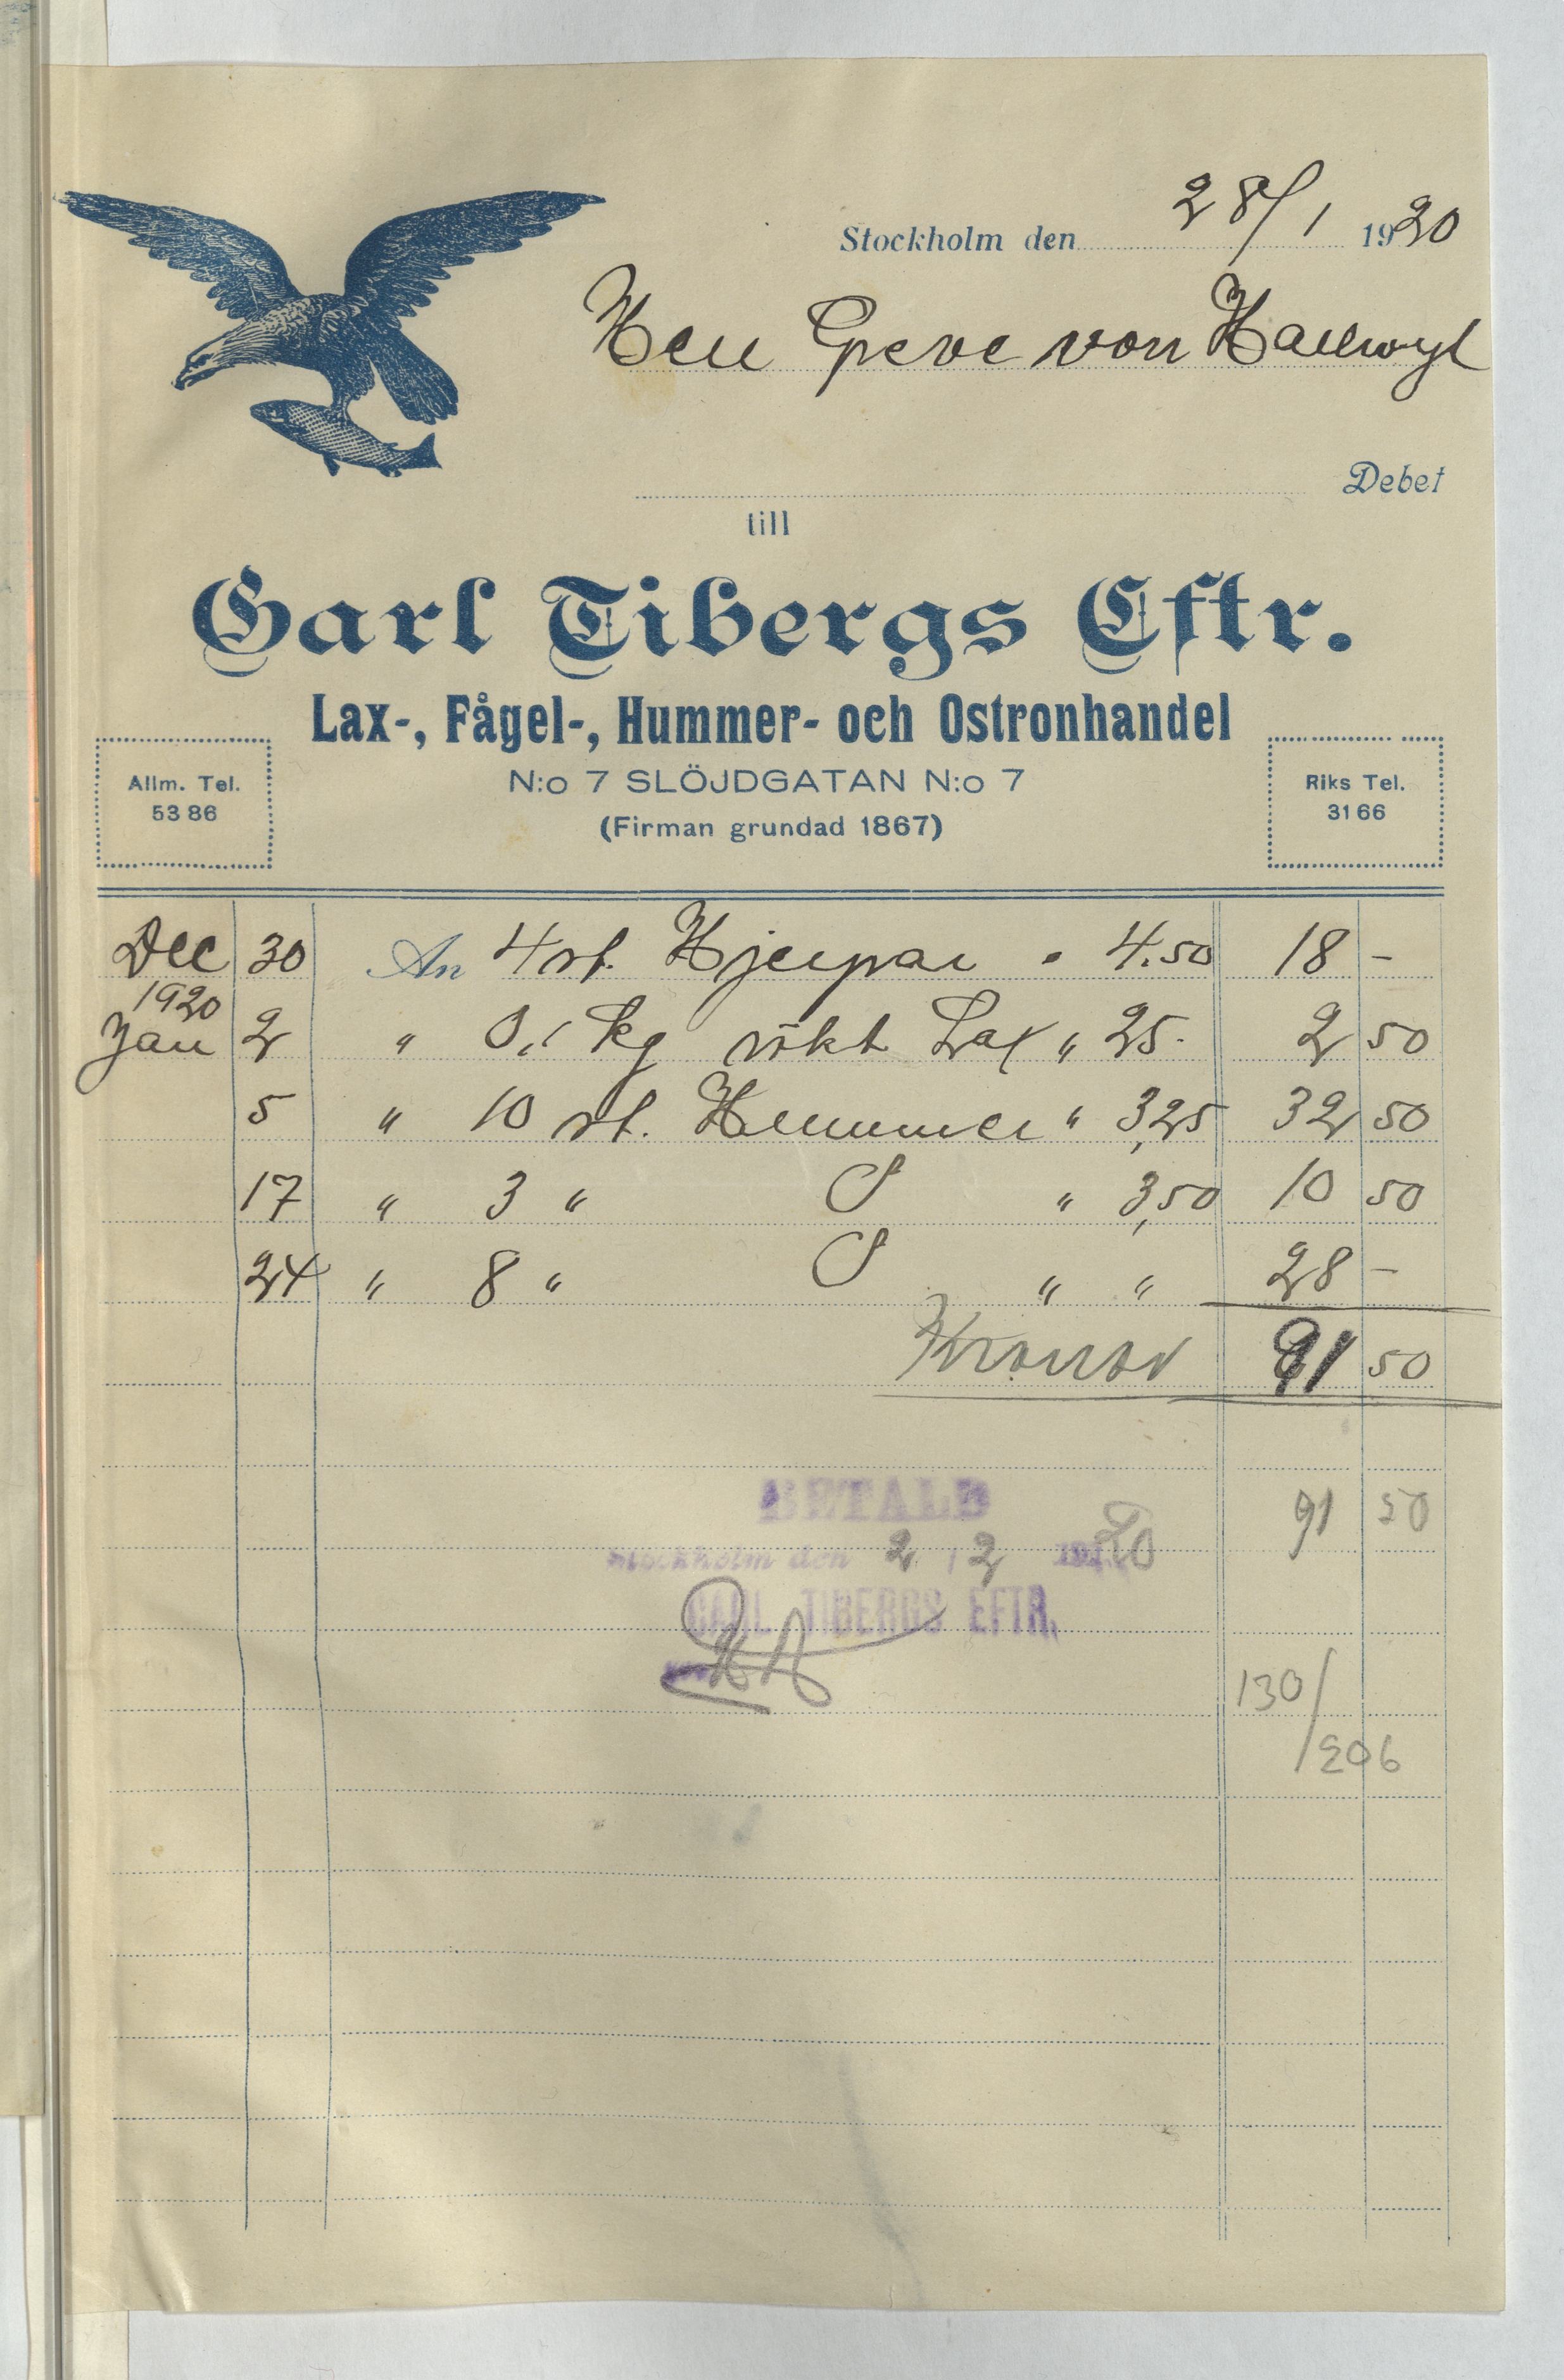 Stockholm den 28/1 1920
Herr Greve von Hallwyl
Debet
till
Carl Tibergs Eftr.
Lax-, Fågel-, Hummer- och Ostronhandel
N:o 7 SLÖJDGATAN N:o 7
(Firman grundad 1867)
Allm. Tel.
53 86
Riks Tel.
31 66
Dec 30 An 4 st. Hjerpar " 4.50 18 -
1920
Jan 2 " 0,1 kg rökt Lax " 25. 2 50
5 " 10 st. Hummer " 3,25 32 50
17 " 3 " " 3,50 10 50
24 " 8 " " " 28 -
Kronor 91 50
BETALD 91 50
Stockholm den 2/2 1920
CARL TIBERGS EFTR.
130/